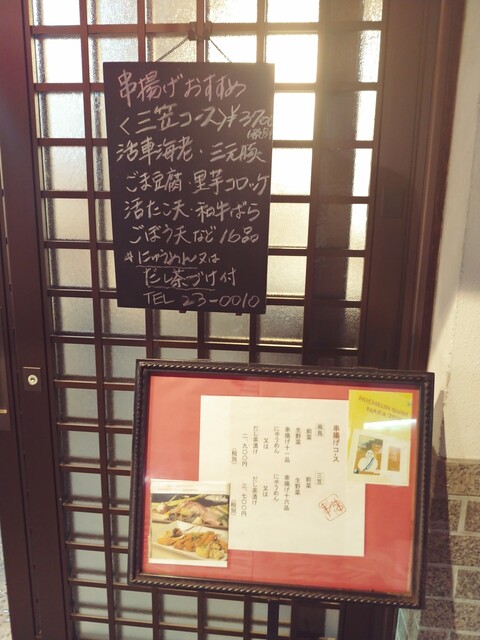 串揚げおすすめ
〈三笠コース〉¥3700
(税別)
活車海老・三元豚
ごま豆腐・里芋コロッケ
活たこ天・和牛ばら
ごぼう天など16品
*にゅうめん又は
だし茶づけ付
TEL 23-0010
串揚げコース
飛鳥
前菜
生野菜
串揚げ十一品
にゅうめん
又は
だし茶漬け
二、九〇〇円
(税別)
三笠
前菜
生野菜
串揚げ十六品
にゅうめん
又は
だし茶漬け
三、七〇〇円
(税別)
MICHELIN GUIDE
NARA